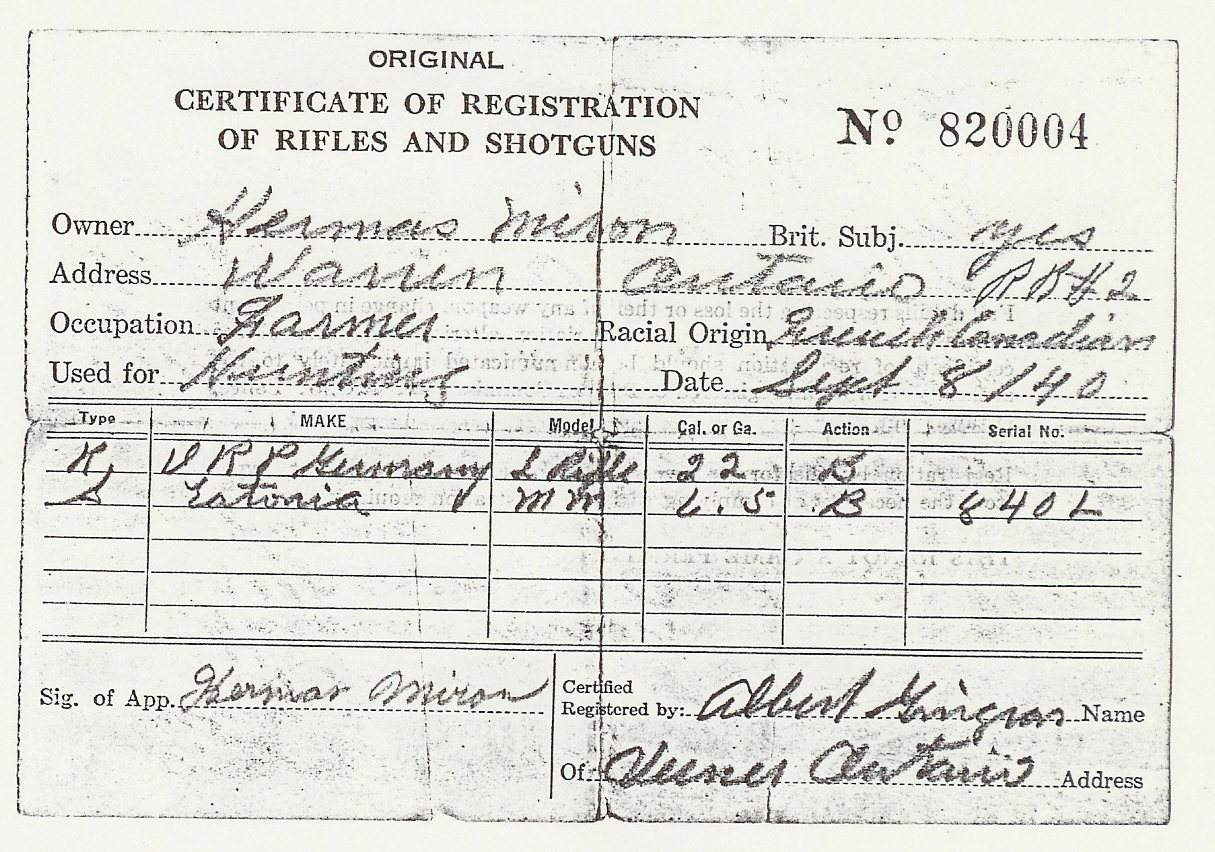 ORIGINAL
CERTIFICATE OF REGISTRATION
OF RIFLES AND SHOTGUNS
No 820004
Owner Hermas Miron Brit. Subj. yes
Address Warren Ontario RR#2
Occupation Farmer Racial Origin French Canadian
Used for Hunting Date Sept 8/40
Type MAKE Model Cal. or Ga. Action Serial No.
R, Germany Rifle 22 B
S Eatonia MM 6.5 B 840L
Sig. of App. Hermas Miron
Certified
Registered by: Albert Gingras Name
Of Verner Ontario Address